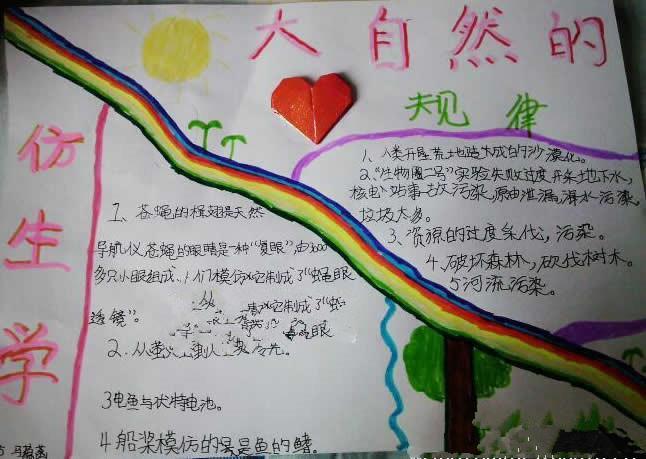 大自然的
规律
仿生学
1、人类开垦荒土地造大成的沙漠化。
2、"生物圈二号"实验失败过度开采地下水,
核电站事故污染,原油泄漏,海水污染,
垃圾太多。
3、资源的过度采伐,污染。
4、破坏森林,砍伐树木。
5河流污染。
1、苍蝇的楫翅是天然
导航仪苍蝇的眼睛是一种"复眼"由3000
多只小眼组成、人们模仿它制成了"蝇眼
透镜"。
2、从萤火
冷光。
3电鱼与伏特电池。
4船桨模仿的是鱼的鳍。